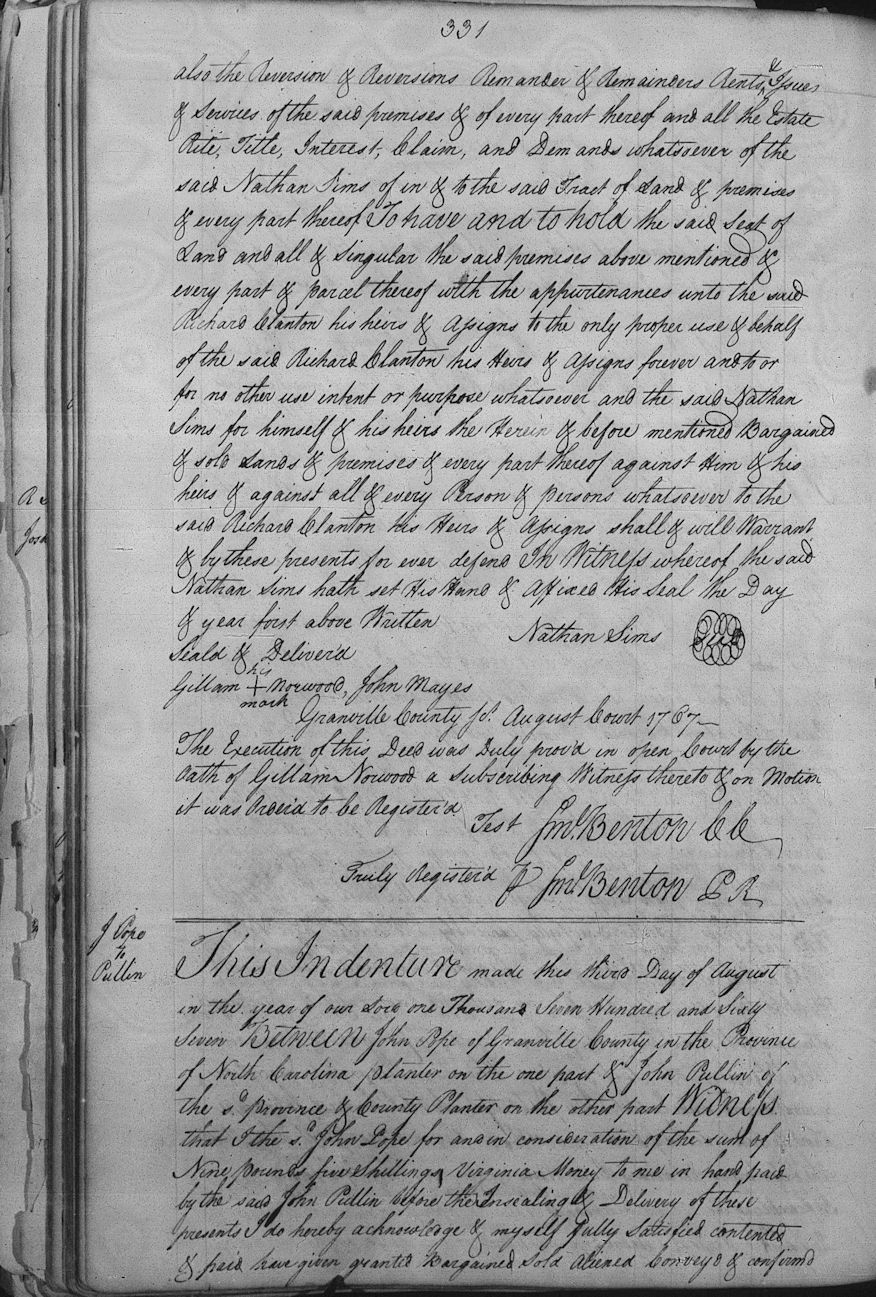 331
also the Reversion & Reversions Remander & Remainders Rents & Issues
& Services of the said premises & of every part thereof and all the Estate
Rite, Title, Interest, Claim, and Demands whatsoever of the
said Nathan Sims of in & to the said Tract of Land & premises
& every part thereof To have and to hold the said Seat of
Land and all & Singular the said premises above mentioned &
every part & parcel thereof with the appurtenances unto the said
Richard Clanton his heirs & Assigns to the only proper use & behalf
of the said Richard Clanton his Heirs & Assigns forever and to or
for no other use intent or purpose whatsoever and the said Nathan
Sims for himself & his heirs the Herein & before mentioned Bargained
& sold Lands & premises & every part thereof against Him & his
heirs & against all & every Person & persons whatsoever to the
said Richard Clanton his Heirs & Assigns shall & will Warrant
& by these presents for ever defend In Witness whereof the said
Nathan Sims hath set His Hand & Affixed His Seal the Day
& year first above Written
Nathan Sims Seal
Seald & Deliverd
Gillam his + mark Norwood, John Mayes
Granville County Sc. August Court 1767
The Execution of this Deed was Duly prov'd in open Court by the
Oath of Gillam Norwood a Subscribing Witness thereto & on Motion
it was Order'd to be Register'd
Test Jno. Benton CC
Truly Register'd P Jno. Benton P R
J Pope
to
Pullin
This Indenture made this third Day of August
in the year of our Lord one Thousand Seven Hundred and Sixty
Seven Between John Pope of Granville County in the Province
of North Carolina planter on the one part & John Pullin of
the sd. province & County Planter on the other part Witness
that I the sd. John Pope for and in consideration of the sum of
Nine pounds five Shillings Virginia Money to me in hand paid
by the said John Pullin before the Insealing & Delivery of these
presents I do hereby acknowledge & myself fully Satisfied contented
& paid have given granted Bargained Sold Aliened Convey'd & confirmd